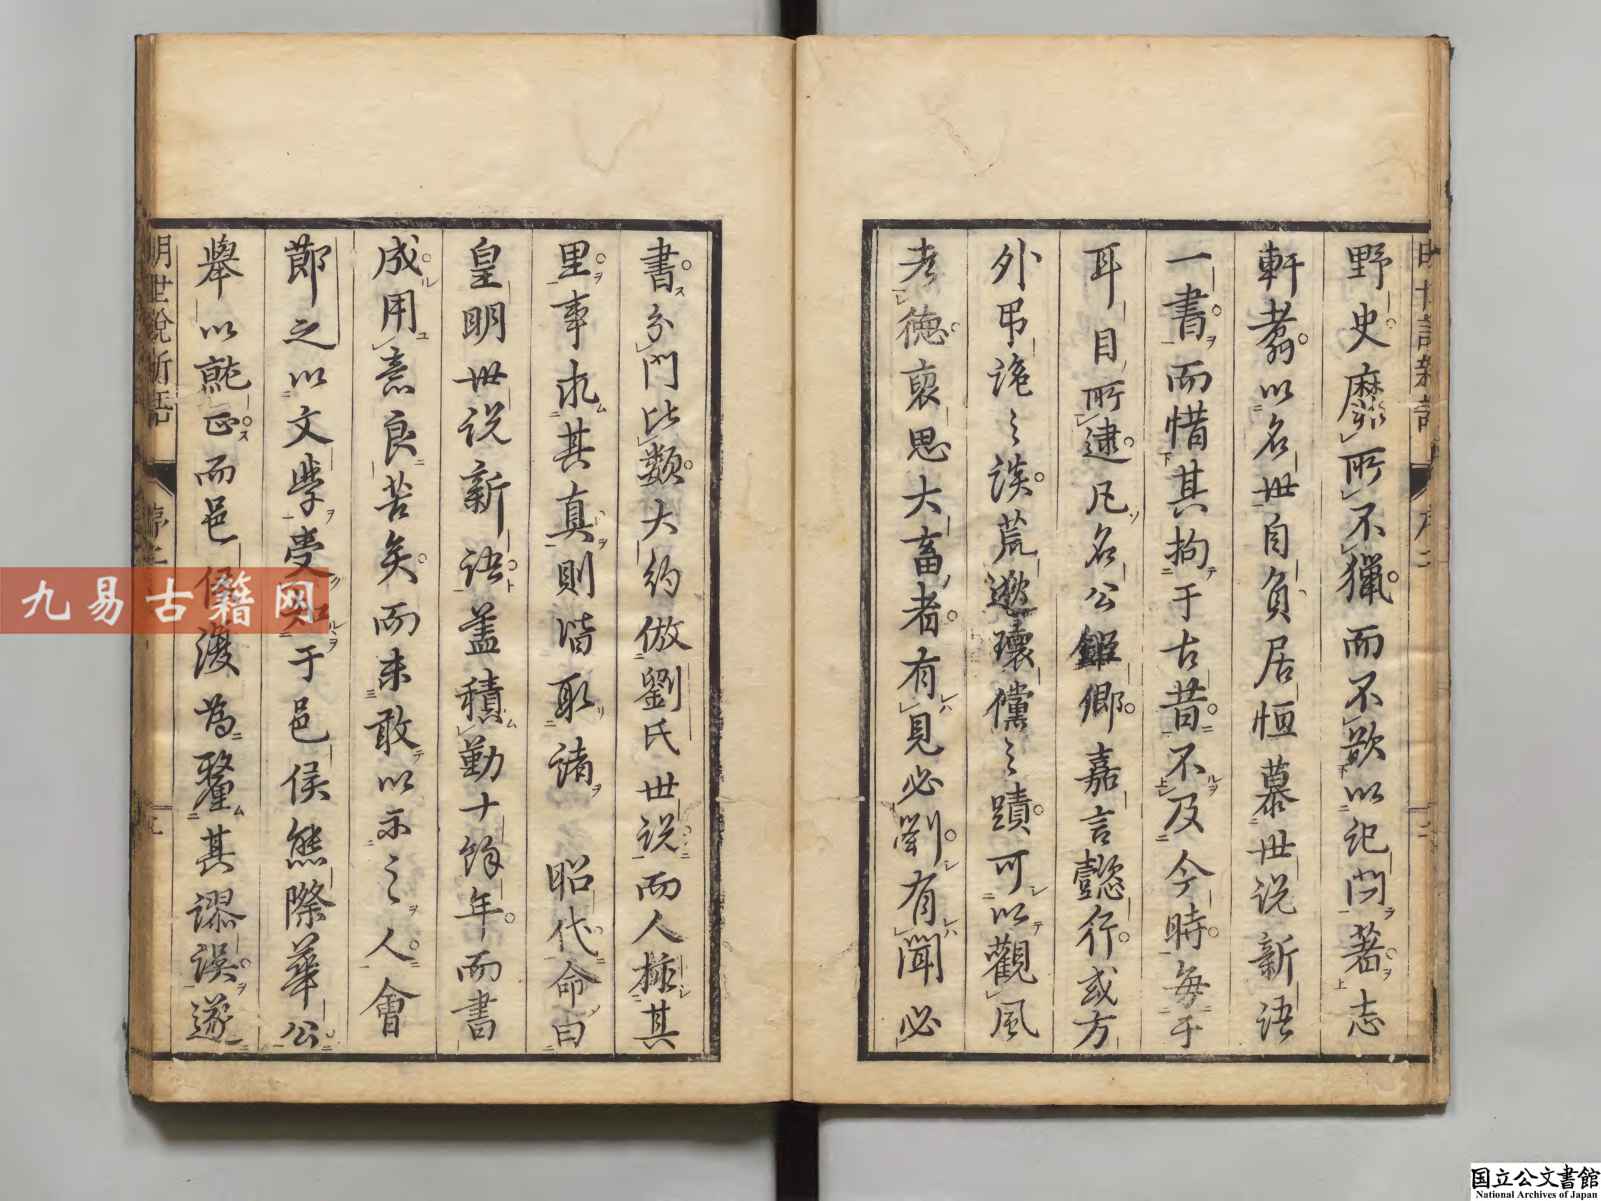 野史靡所不獵而不欲以記問著志
軒耆以名世自負居恒慕世说新语
一書而惜其拘于古昔不及今時每于
耳目所逮凡名公鉅卿嘉言懿行或方
外弔詭之談荒逖瓌儻之蹟可以觀風
考德裒思大畜者有見必劄有聞必
書分門比類大約倣劉氏世说而人極其
里事求其真則皆取諸 昭代命曰
皇明世说新語蓋積勤十餘年而書
成用意良苦矣而未敢以示之人會
鄖之以文學受知于邑侯熊際華公
舉以就正而邑侯復為釐其謬误遂
明世說新語
序二
明世說新語
序
九易古籍网
国立公文書館
National Archives of Japan